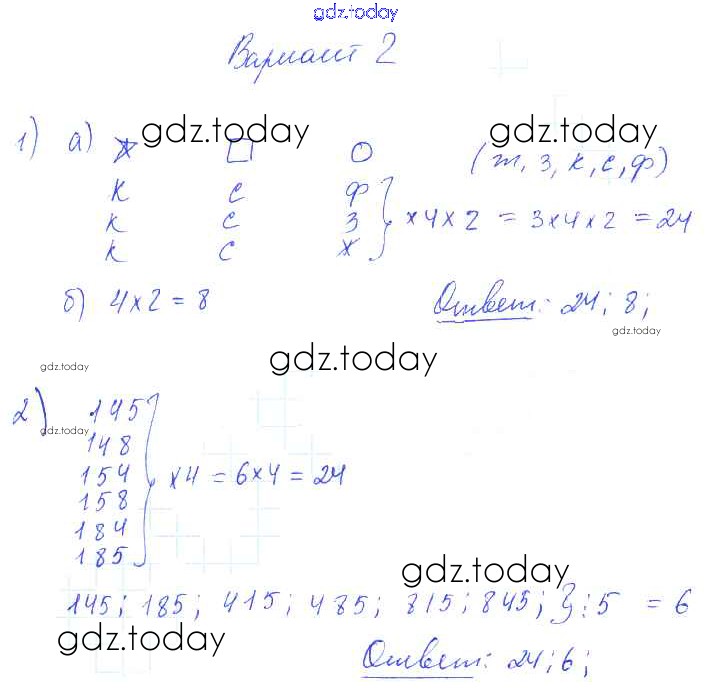 gdz.today
Вариант 2
1) а) gdz.today gdz.today
☆ □ ○ (ж, з, к, с, ф)
к с ф
к с з } ×4×2 = 3×4×2 = 24
к с ж
б) 4×2 = 8 Ответ: 24; 8;
gdz.today
gdz.today
gdz.today
2) 145
gdz.today
148
154 } ×4 = 6×4 = 24
158
184
185
gdz.today
145; 185; 415; 485; 815; 845; } : 5 = 6
gdz.today
Ответ: 24; 6;